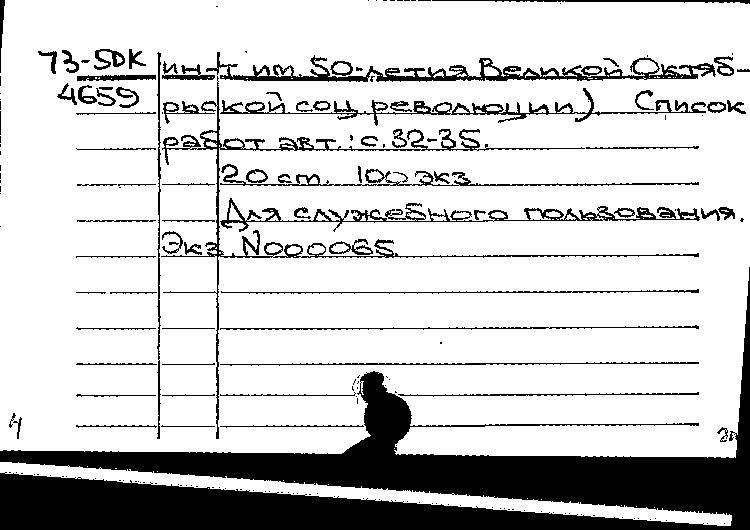 73-5DK ин-т им. 50-летия Великой Октяб-
4659 рьской соц. революции). Список
работ авт.: с. 32-35.
20 cm. 100 экз.
Для служебного пользования.
Экз. N000065.
4